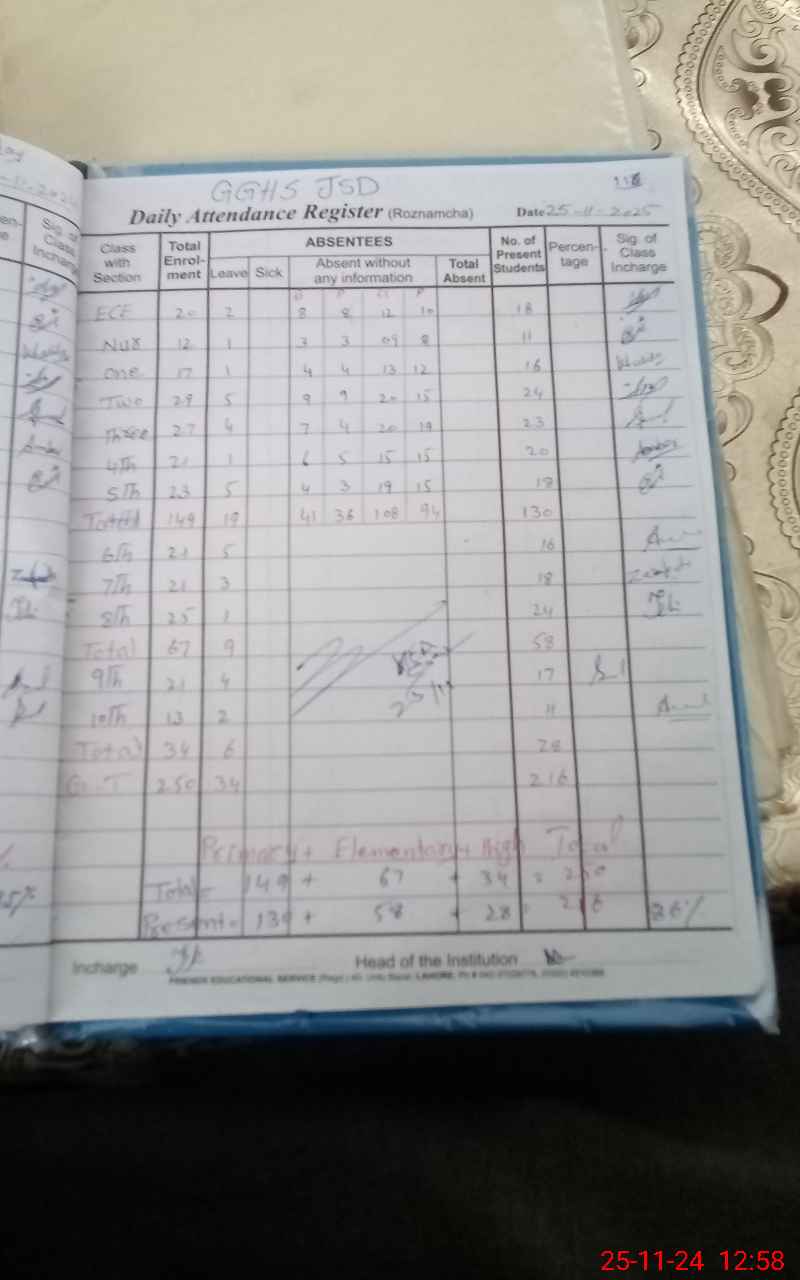 GGHS JSD
118
Daily Attendance Register (Roznamcha) Date 25-11-2025
Class with Section Total Enrol-ment ABSENTEES No. of Present Students Percen-tage Sig. of Class Incharge
Leave Sick Absent without any information Total Absent
ECE 20 2 8 8 12 10 18
Nur 12 1 3 3 09 8 11
One 17 1 4 4 13 12 16
Two 29 5 9 9 20 15 24
Three 27 4 7 4 20 19 23
4Th 21 1 6 5 15 15 20
5Th 23 5 4 3 19 15 18
Total 149 19 41 36 108 94 130
6Th 21 5 16
7Th 21 3 18
8Th 25 1 24
Total 67 9 58
9Th 21 4 17
10Th 13 2 11
Total 34 6 28
G.T 250 34 216
Primary + Elementary + High Total
Total= 149 + 67 + 34 = 250
Present= 130 + 58 + 28 = 216 86%
Incharge Head of the Institution
25-11-24 12:58